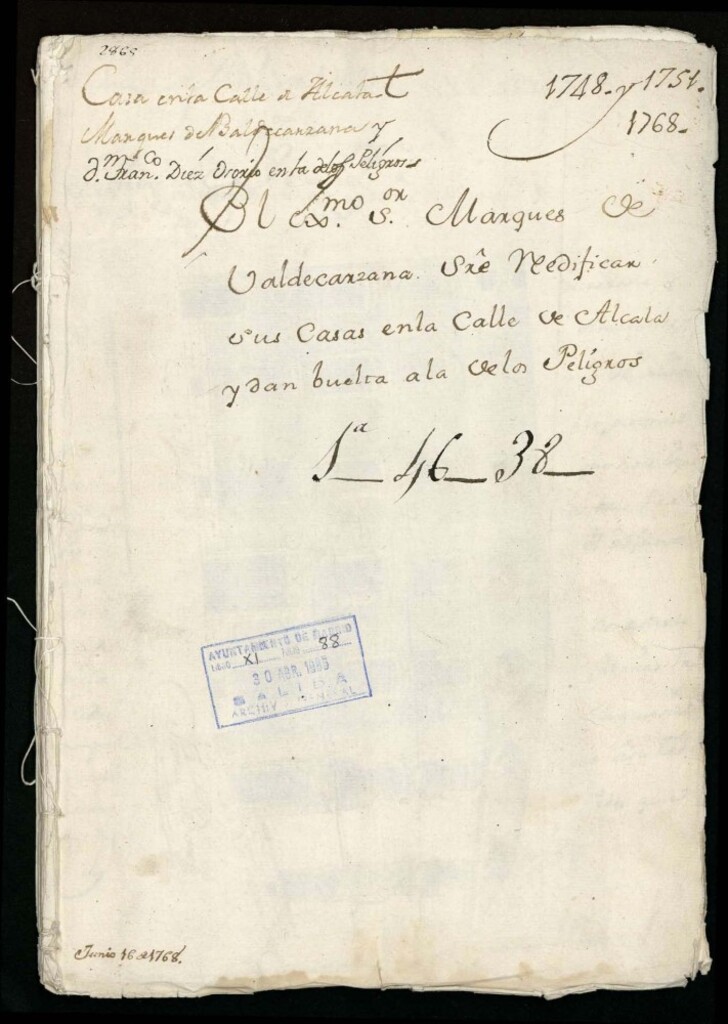 2865
Casa enla Calle de Alcala
Marques de Baldecarzana y
D.n Fran.co Diéz Ororio enla delos Pelígros
1748. y 1751.
1768.
El Exmo. S.or Marques de
Valdecarzana. sre Redificar
sus Casas enla Calle de Alcala
y dan buelta ala delos Pelígros
1a 46 38
AYUNTAMIENTO DE MADRID
XI 88
30 ABR. 1985
SALIDA
ARCHIVO GENERAL
Junio 16 de 1768.